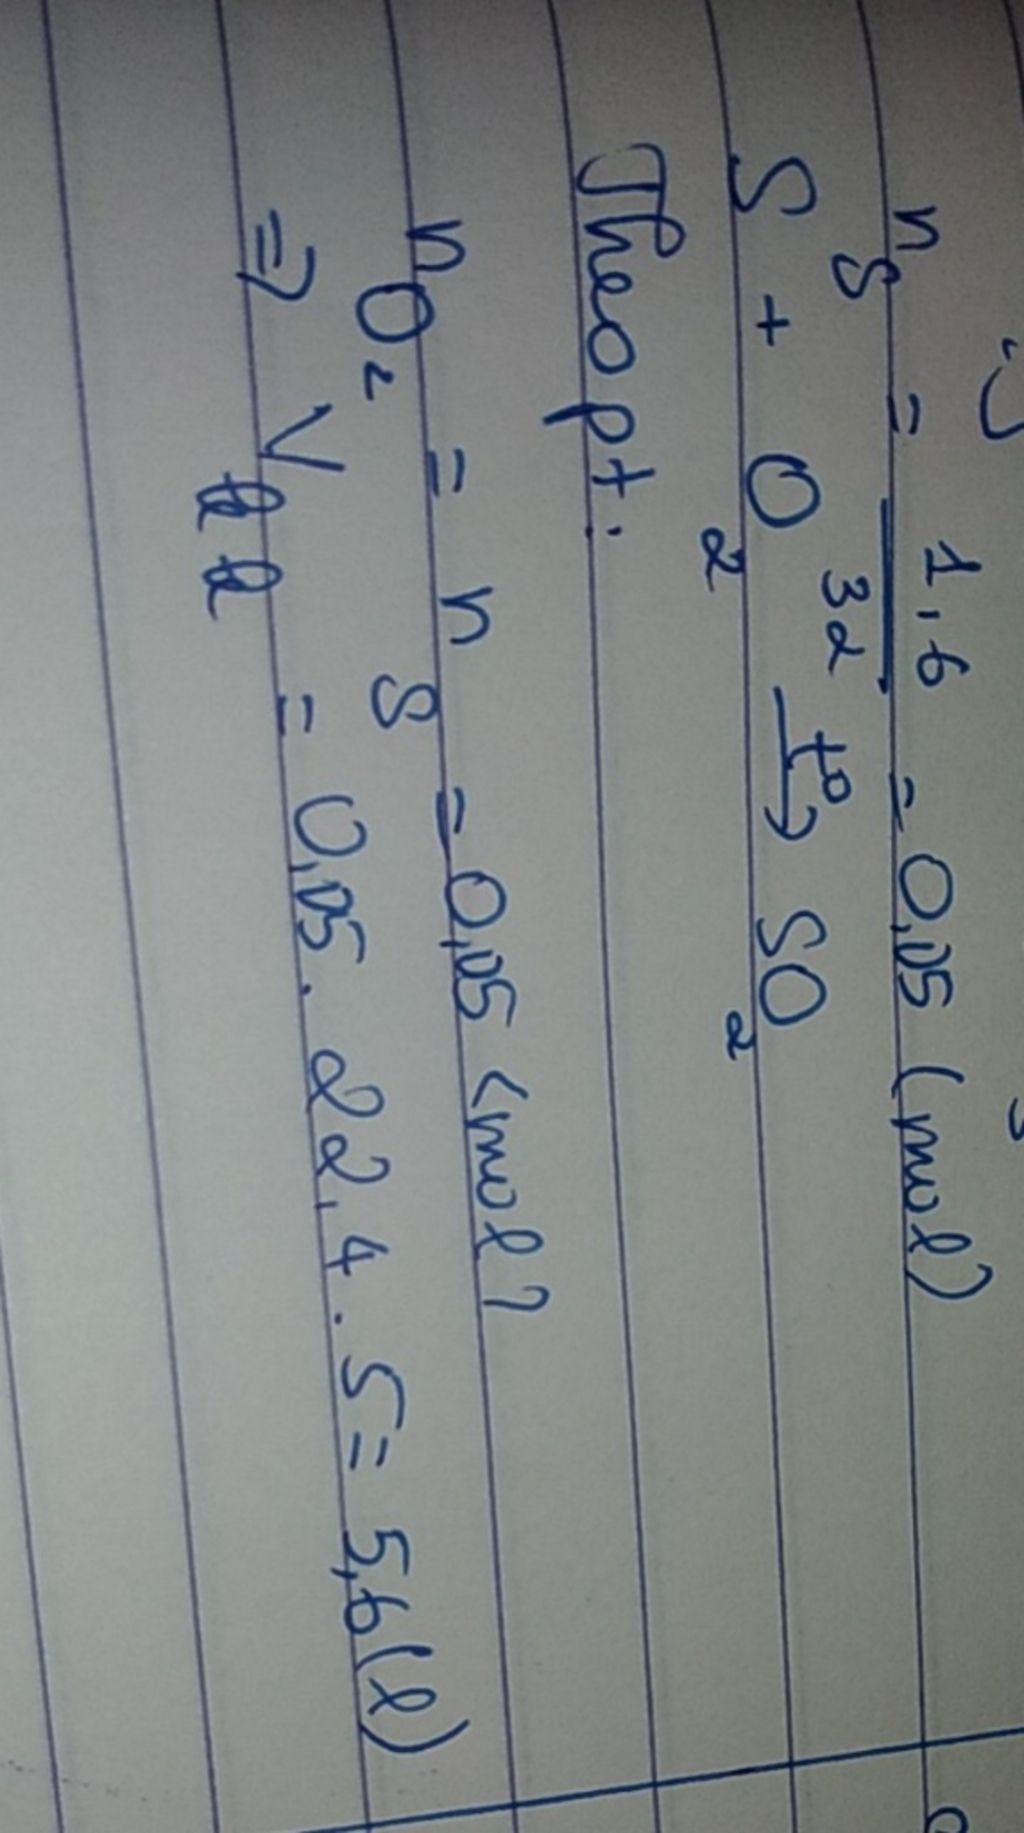 n_S = 1,6/32 = 0,05 (mol)
S + O₂ —t⁰→ SO₂
Theo pt:
n_O₂ = n_S = 0,05 (mol)
=> V_kk = 0,05 . 22,4 . 5 = 5,6 (l)